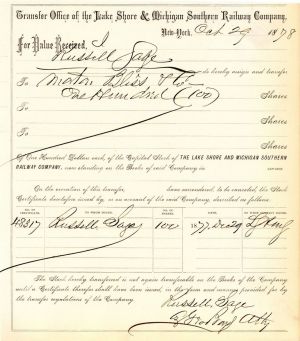 Transfer Office of the Lake Shore & Michigan Southern Railway Company,
New-York, Oct 29 1878
For Value Received, I
Russell Sage
do hereby assign and transfer
To Morton Bliss & Co
One Hundred (100) Shares
To Shares
To Shares
To Shares
of One Hundred Dollars each, of the Capital Stock of THE LAKE SHORE AND MICHIGAN SOUTHERN
RAILWAY COMPANY, now standing on the Books of said Company in name.
On the execution of this transfer, have surrendered, to be canceled, the Stock
Certificate heretofore issued by, or on account of the said Company, described as follows:
NO. OF CERTIFICATE. TO WHOM ISSUED. NO. OF SHARES. DATE. BY WHOM SIGNED.
Russell Sage 100 1877 Dec 29
The Stock hereby transferred is not again transferable on the Books of the Company
until a Certificate therefor shall have been issued, in the form and manner provided for by
the transfer regulations of the Company.
Russell Sage
Atty